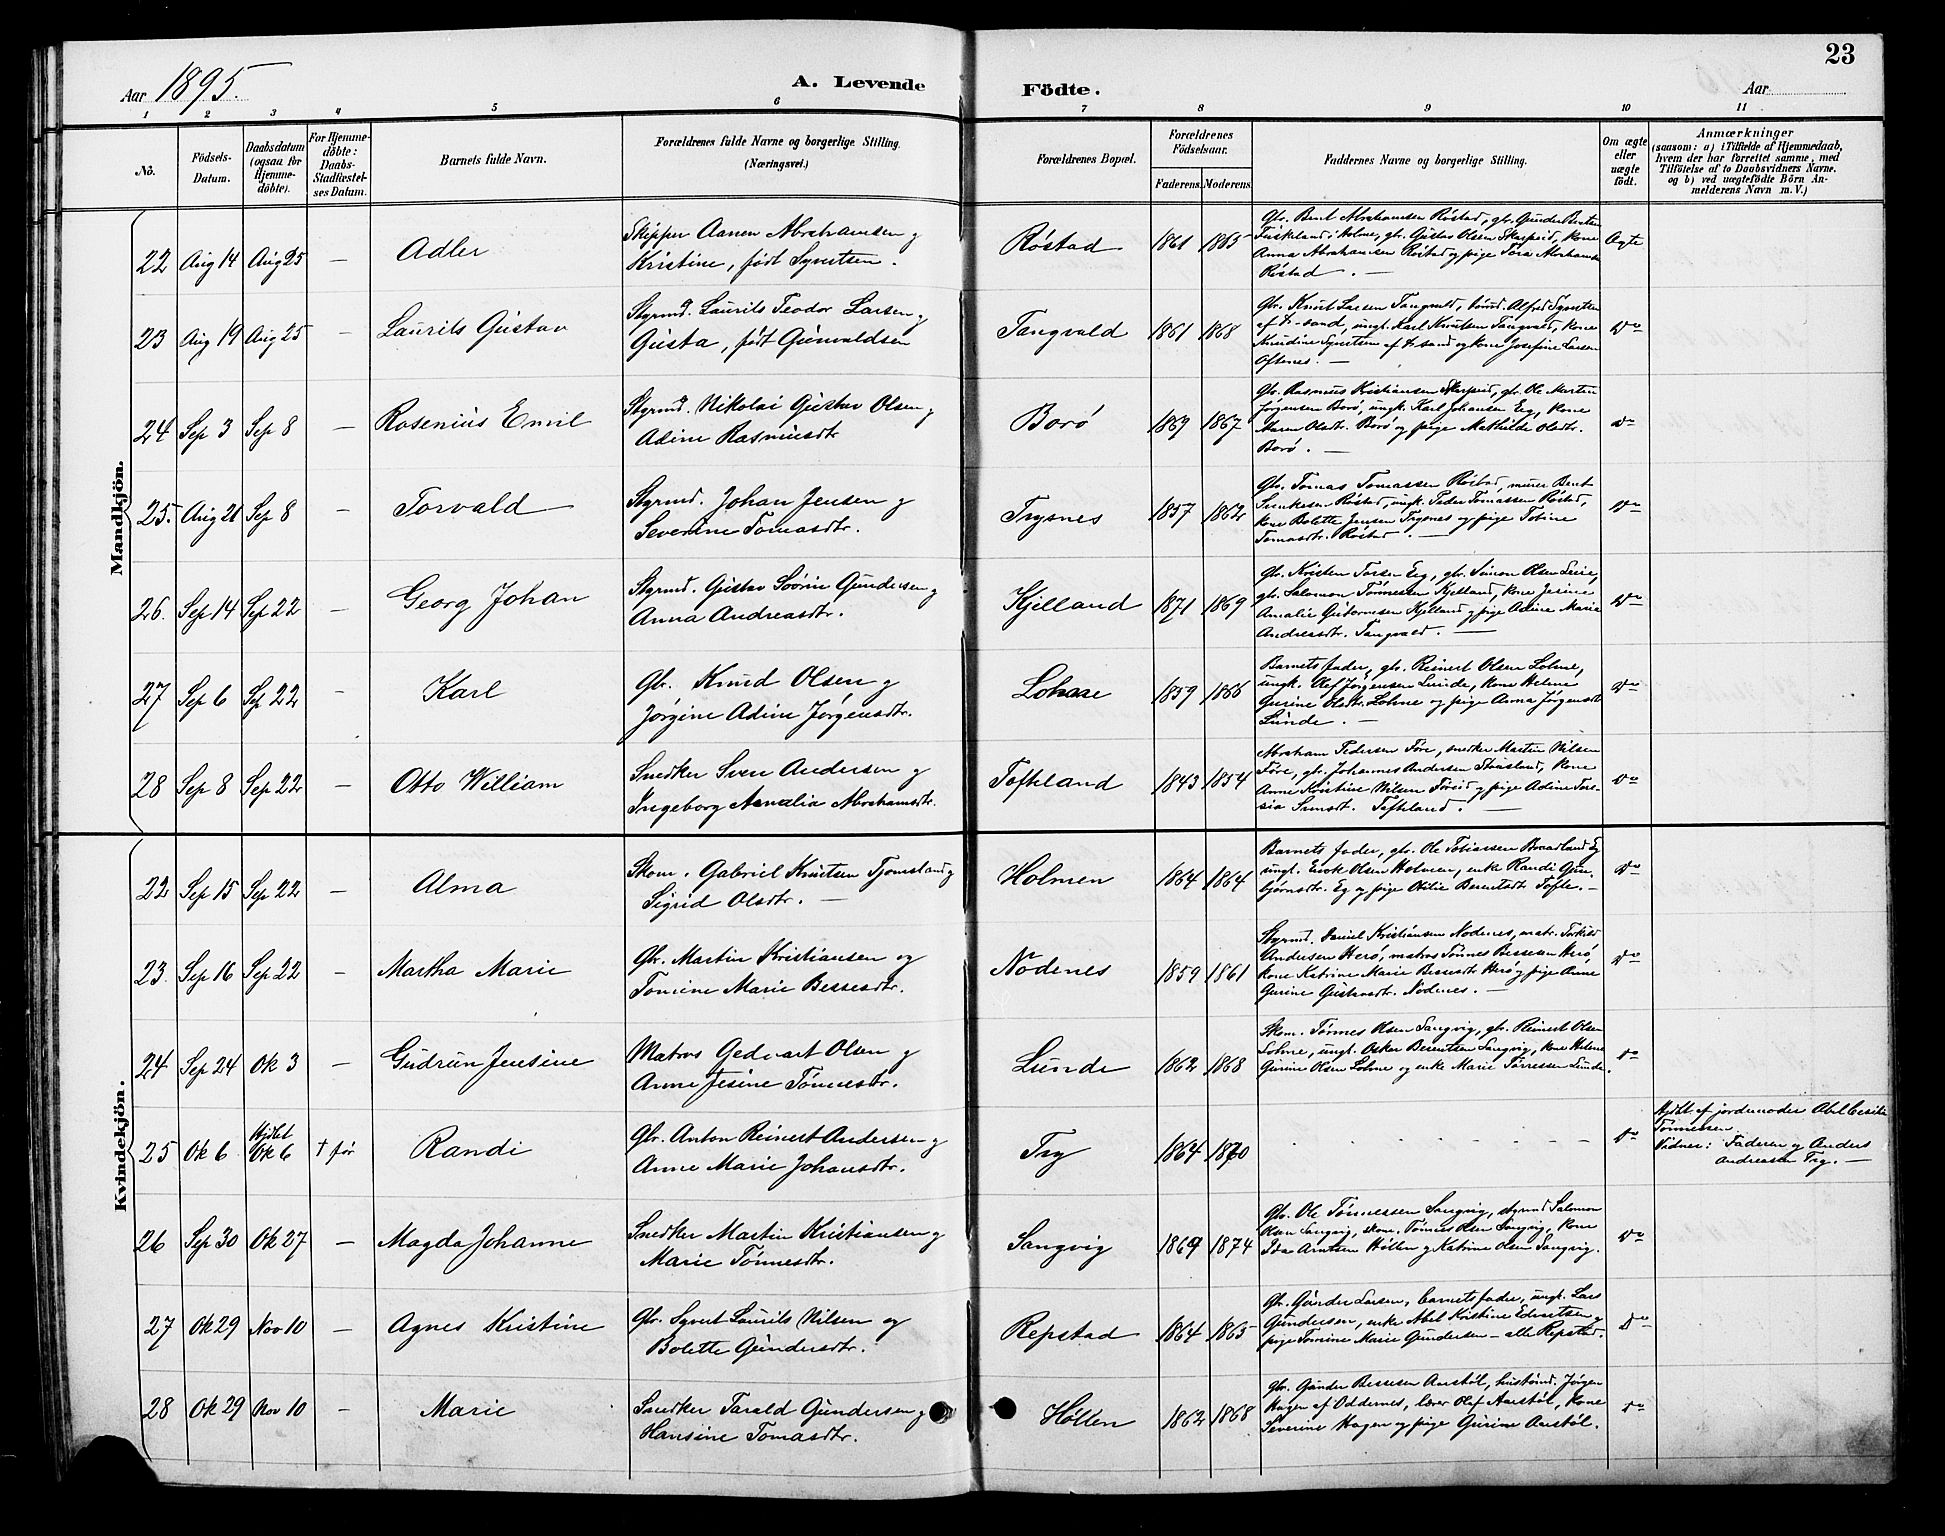 23
Aar 1895.
A. Levende
Födte.
Aar
1 2 3 4 5 6 7 8 9 10 11
No.
Födsels-
Datum.
Daabsdatum
(ogsaa for
Hjemme-
döbte).
For Hjemme-
döbte:
Daabs-
Stadfæstel-
ses Datum.
Barnets fulde Navn.
Forældrenes fulde Navne og borgerlige Stilling.
(Næringsvei.)
Forældrenes Bopæl.
Forældrenes
Födselsaar.
Faderens.
Moderens.
Faddernes Navne og borgerlige Stilling.
Om ægte
eller
uægte
födt.
Anmærkninger
(saasom: a) i Tilfælde af Hjemmedaab,
hvem der har forrettet samme, med
Tilföielse af to Daabsvidners Navne.
og b) ved uægtefödte Börn An-
melderens Navn m. V.)
Mandkjön.
22 Aug 14 Aug 25 — Adler
Skipper Aanen Abrahamsen og
Kristine, født Syvertsen.
Røstad 1861 1865
Gbr. Bent Abrahamsen Røstad, gbr. Gunder Bentsen
Fuskeland i Holme, gbr. Gustav Olsen Skarpeid, kone
Anna Abrahamsen Røstad og pige Tora Abrahamsen
Røstad. —
Ægte
23 Aug 19 Aug 25 — Laurits Gustav
Styrmd. Laurits Teodor Larsen og
Gusta, født Gunvaldsen
Tangvald 1861 1868
Gbr. Knut Larsen Tangvald, tømd. Alfred Syvertsen
af K-sand, ungk. Karl Knutsen Tangvald, kone
Knudine Syvertsen af K-sand og kone Josefine Larsen
Oftenes. —
Do
24 Sep 3 Sep 8 — Rosenius Emil
Styrmd. Nikolai Gustav Olsen og
Adine Rasmusdtr
Borø 1869 1867
Gbr. Rasmus Kristiansen Skarpeid, gbr. Ole Martin
Jørgensen Borø, ungk. Karl Johansen Eg, kone
Maren Olsdtr. Borø og pige Mathilde Olsdtr.
Borø. —
Do
25. Aug 21 Sep 8 — Torvald
Styrmd. Johan Jensen og
Severine Tomasdtr.
Trysnes 1857 1862
Gbr. Tomas Tomassen Røstad, murer Bent
Røstad, ungk. Peder Tomassen Røstad,
kone Bolette Jensen Trysnes og pige Tobine
Tomasdtr. Røstad. —
Do
26. Sep 14 Sep 22 — Georg Johan
Styrmd. Gustav Søorin Gundersen og
Anna Andreasdtr.
Kjelland 1871 1869
Gbr. Kristen Torsen Eeg, gbr. Simon Olsen Leire,
gbr. Salomon Tønnessen Kjelland, kone Jesine
Amalie Guttormsen Kjelland og pige Adine Marie
Andreasdtr. Tangvald. —
Do
27 Sep 6 Sep 22 — Karl
Gbr. Knud Olsen og
Jørgine Adine Jørgensdtr.
Lohne 1859 1866
Barnets fader, gbr. Reinert Olsen Lohne,
ungk. Olef Jørgensen Lunde, kone Helene
Gurine Olsdtr. Lohne og pige Anna Jørgensdtr
Lunde. —
Do
28 Sep 8 Sep 22 — Otto William
Snedker Sven Andersen og
Ingeborg Amalia Abrahamsdtr.
Tofteland 1843 1854
Abraham Pedersen Føre, snedker Martin Nilsen
Føre, gbr. Johannes Andersen Stausland, kone
Anne Kristine Nilsen og pige Adine Tere-
sia Svensdt. Tofteland. —
Do
Kvindekjön.
22 Sep 15 Sep 22 — Alma
Skom. Gabriel Knutsen Tjomsland og
Sigrid Olsdtr. —
Holmen 1864 1864
Barnets fader, gbr. Ole Tobiassen Braadland Eg
ungk. Olsen Holmen, enke Randi Gun-
bjørnsdtr. Eg og pige Otilie Berentsdt Tofte. —
Do
23. Sep 16 Sep 22 — Martha Marie
Gbr. Martin Kristiansen og
Tomine Marie Bessesdtr.
Nodenes 1859 1861
Styrmd. Daniel Kristiansen Nodenes, matr. Torkild
Andersen Herø, matros Tønnes Bessesen Herø,
kone Katrine Marie Bessesdt Herø og pige Anne
Gurine Gustavsdtr. Nodenes. —
Do
24 Sep 24 Ok 3 — Gudrun Jensine
Matros Gedvart Olsen og
Anne Jesine Tønnesdtr.
Lunde 1862 1868
Skom. Tønnes Olsen Sangvig, gbr. Reinert Olsen
Lohne, ungk. Osker Berentsen Sangvig, kone Helene
Gurine Olsen Lohne og enke Marie Tørressen Lunde.
Do
25 Ok 6 Hjdbt Ok 6 † før Randi
Gbr. Anton Reinert Andersen og
Anne Marie Johansdtr.
Try 1864 1870
Do
Hjdbt af jordemoder Abel Cecilie
Tønnessen
Vidner: Faderen og Anders
Andreassen Try. —
26 Sep 30 Ok 27 — Magda Johanne
Snedker Martin Kristiansen og
Marie Tønnesdtr.
Sangvig 1869 1874
Gbr. Ole Tønnessen Sangvig, styrmd Salomon
Olsen Sangvig, skom. Tønnes Olsen Sangvig, kone
Ida Arntsen Høllen og Katrine Olsen Sangvig.
Do
27 Ok 29 Nov 10 — Agnes Kristine
Gbr. Syvert Laurits Nilsen og
Bolette Gundersdtr.
Repstad 1864 1865
Gbr. Gunder Larsen, barnets fader, ungk. Lars
Gundersen, enke Abel Kristine Edvartsen og
pige Tomine Marie Gundersen — alle Repstad.
Do
28 Ok 29 Nov 10 — Marie
Snedker Tarald Gundersen og
Hansine Tomasdtr.
Høllen 1862 1868
Gbr. Gunder Bessesen Aarstøl, hustømd. Jørgen
Hagen af Oddernes, lærer Olaf Aarstøl, kone
Severine Hagen og pige Gurine Aarstøl.
Do